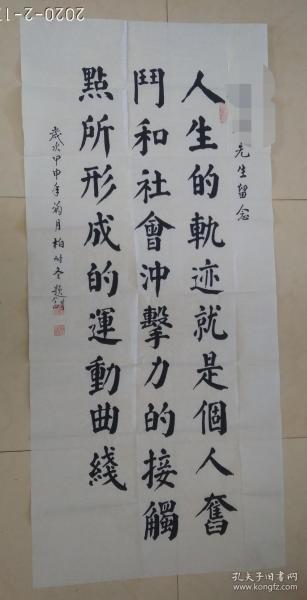 先生留念
人生的軌迹就是個人奮
鬥和社會沖擊力的接觸
點所形成的運動曲綫
歲次甲申年菊月柏
2020-2-1
孔夫子旧书网